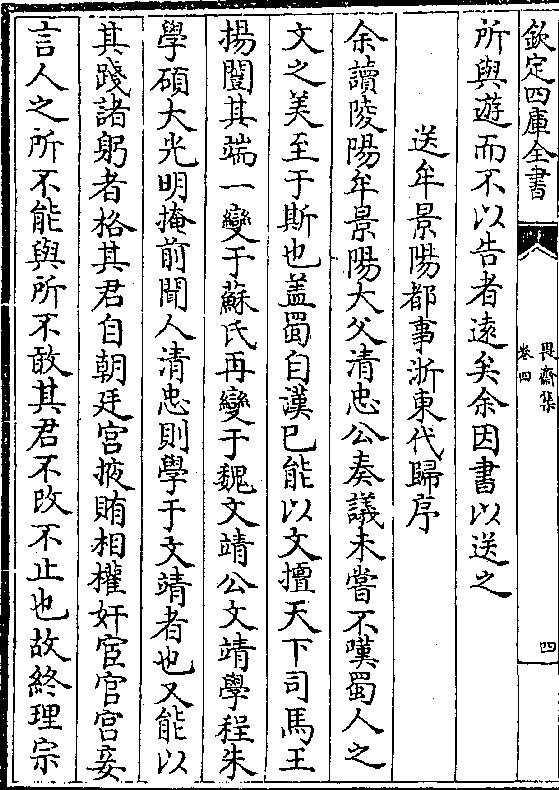 欽定四庫全書
畏齋集
卷四
四
所與遊而不以告者遠矣余因書以送之
送牟景陽都事浙東代歸序
余讀陵陽牟景陽大父清忠公奏議未嘗不嘆蜀人之
文之美至于斯也盖蜀自漢已能以文擅天下司馬王
揚闓其端一變于蘇氏再變于魏文靖公文靖學程朱
學碩大光明掩前聞人清忠則學于文靖者也又能以
其踐諸躬者格其君自朝廷宫掖賄相權奸宦官宫妾
言人之所不能與所不敢其君不改不止也故終理宗